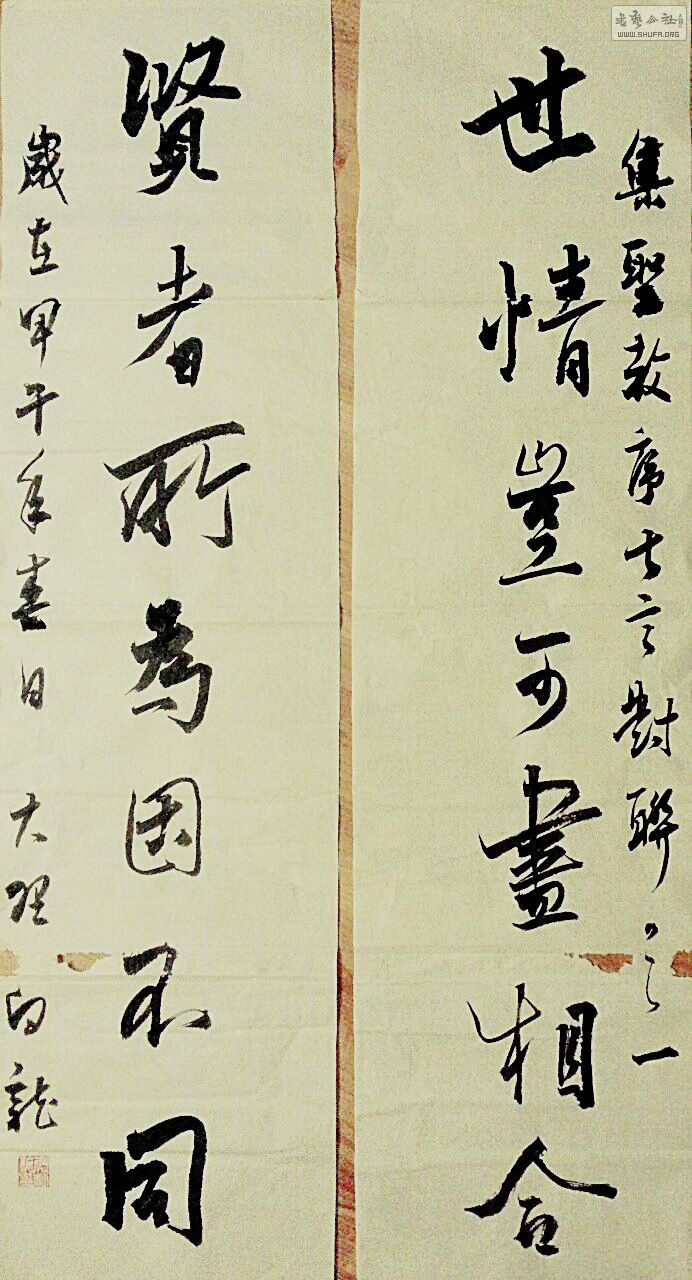 集聖教序七言對聯之一
世情豈可盡相合
賢者所為因不同
歲在甲午年春日 大理 向龍
書藝公社
WWW.SHUFA.ORG